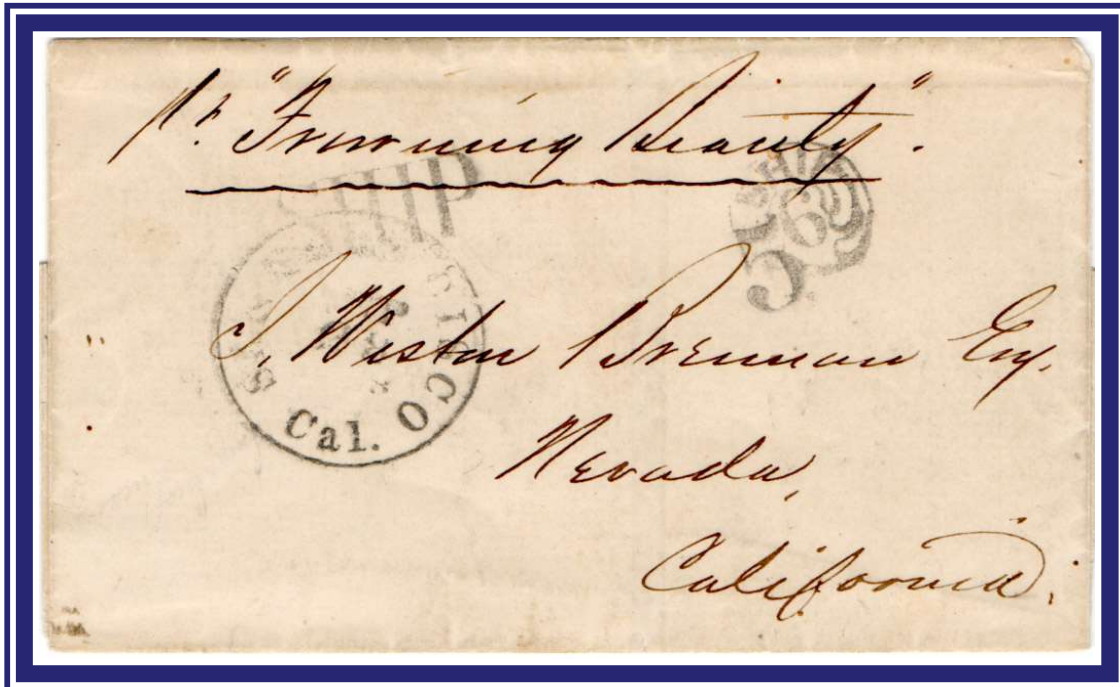 pr. "Frowning Beauty".
SHIP
SHIP
6
SAN FRANCISCO
Cal.
Brennan Esq.
Nevada,
California.